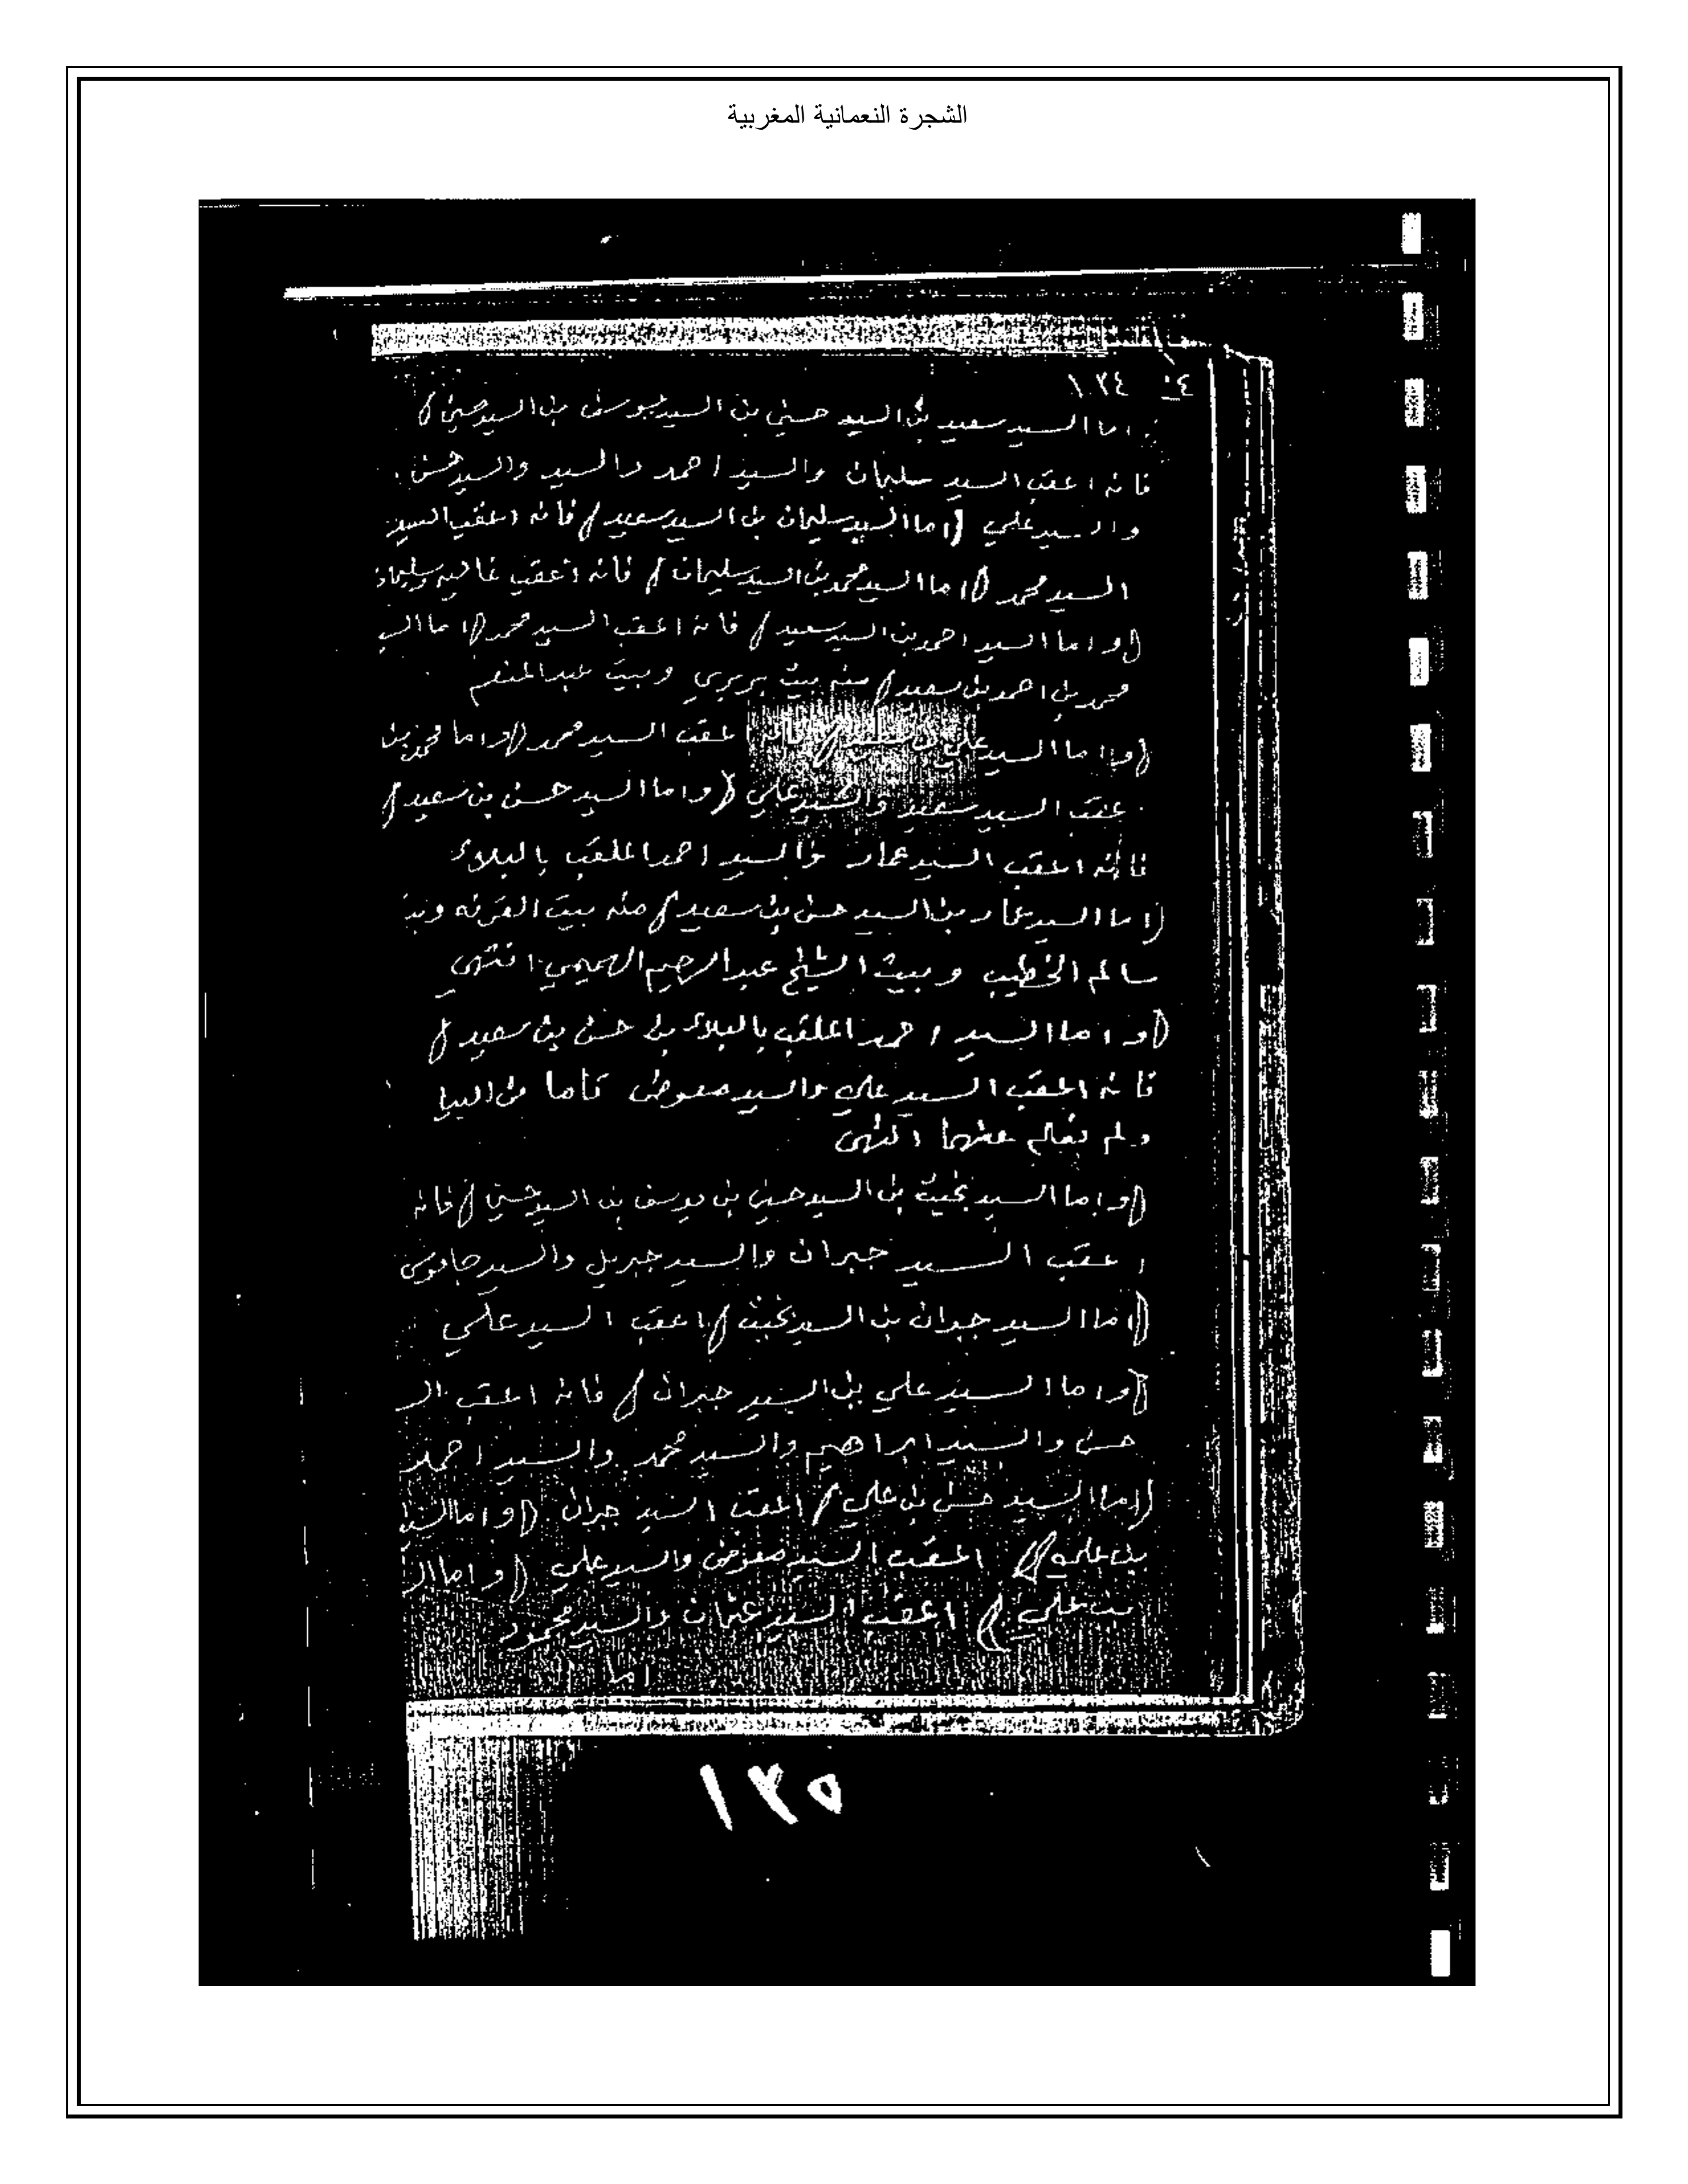 الشجرة النعمانية المغربية
١٣٤
اما السيد سعيد بن السيد حسين بن السيد يوسف بن السيد حسين)
فانه اعقب السيد سليمان والسيد احمد والسيد والسيد حسن
والسيد علي (اما السيد سليمان بن السيد سعيد) فانه اعقب السيد
السيد محمد (اما السيد محمد بن السيد سليمان) فانه اعقب
(واما السيد احمد بن السيد سعيد) فانه اعقب السيد محمد (اما
محمد بن احمد بن سعيد) منه بيت بربري وبيت عبد المنعم
(واما السيد علي بن سعيد) اعقب السيد محمد (واما محمد بن
عقب السيد سعيد والسيد علي (واما السيد حسن بن سعيد)
فانه اعقب السيد عمار والسيد احمد الملقب بالبلاء
(اما السيد عمار بن السيد حسن بن سعيد) منه بيت
سالم الخطيب وبيت الشيخ عبد الرحيم انتهى
(واما السيد احمد الملقب بالبلاء بن حسن بن سعيد)
فانه اعقب السيد علي والسيد معوض
ولم نعلم عنهما انتهى
(واما السيد بخيت بن السيد حسين بن يوسف بن السيد حسين) فانه
اعقب السيد جبران والسيد جبريل والسيد
(اما السيد جبران بن السيد بخيت) اعقب السيد علي
(واما السيد علي بن السيد جبران) فانه اعقب الـ
حسن والسيد ابراهيم والسيد محمد والسيد احمد
(اما السيد حسن بن علي) اعقب السيد جبران (واما السيد
بن علي) اعقب السيد معوض والسيد علي (واما الـ
بن علي) اعقب السيد عثمان والسيد محمود
اما
١٣٥